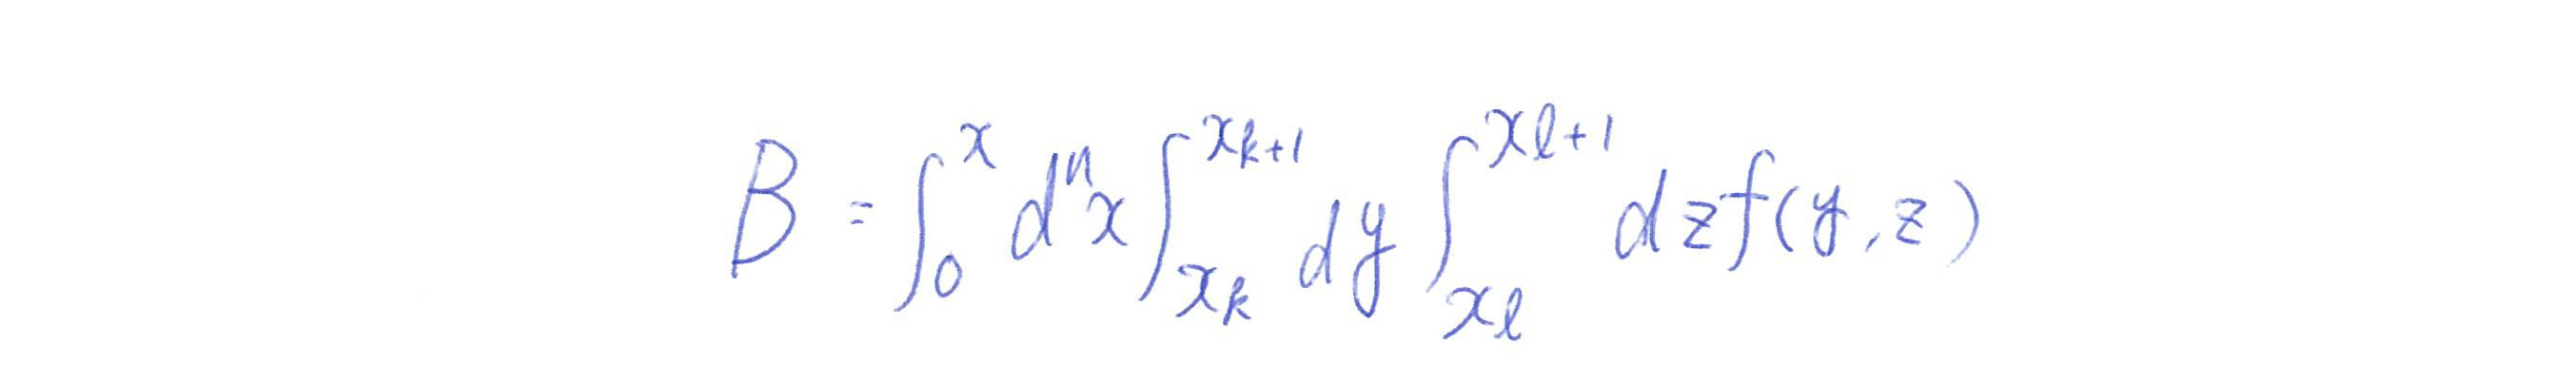 B = ∫_0^x d^n x ∫_{x_k}^{x_{k+1}} dy ∫_{x_ℓ}^{x_{ℓ+1}} dz f(y, z)